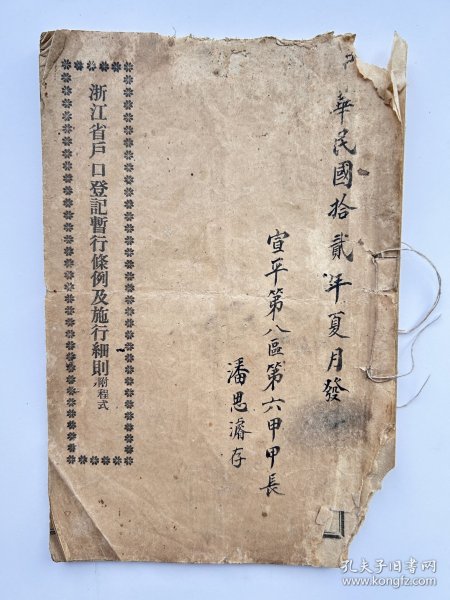 華民國拾貳年夏月發
宣平第八區第六甲甲長
潘思濬存
浙江省戶口登記暫行條例及施行細則附程式
孔夫子旧书网
www.kongfz.com